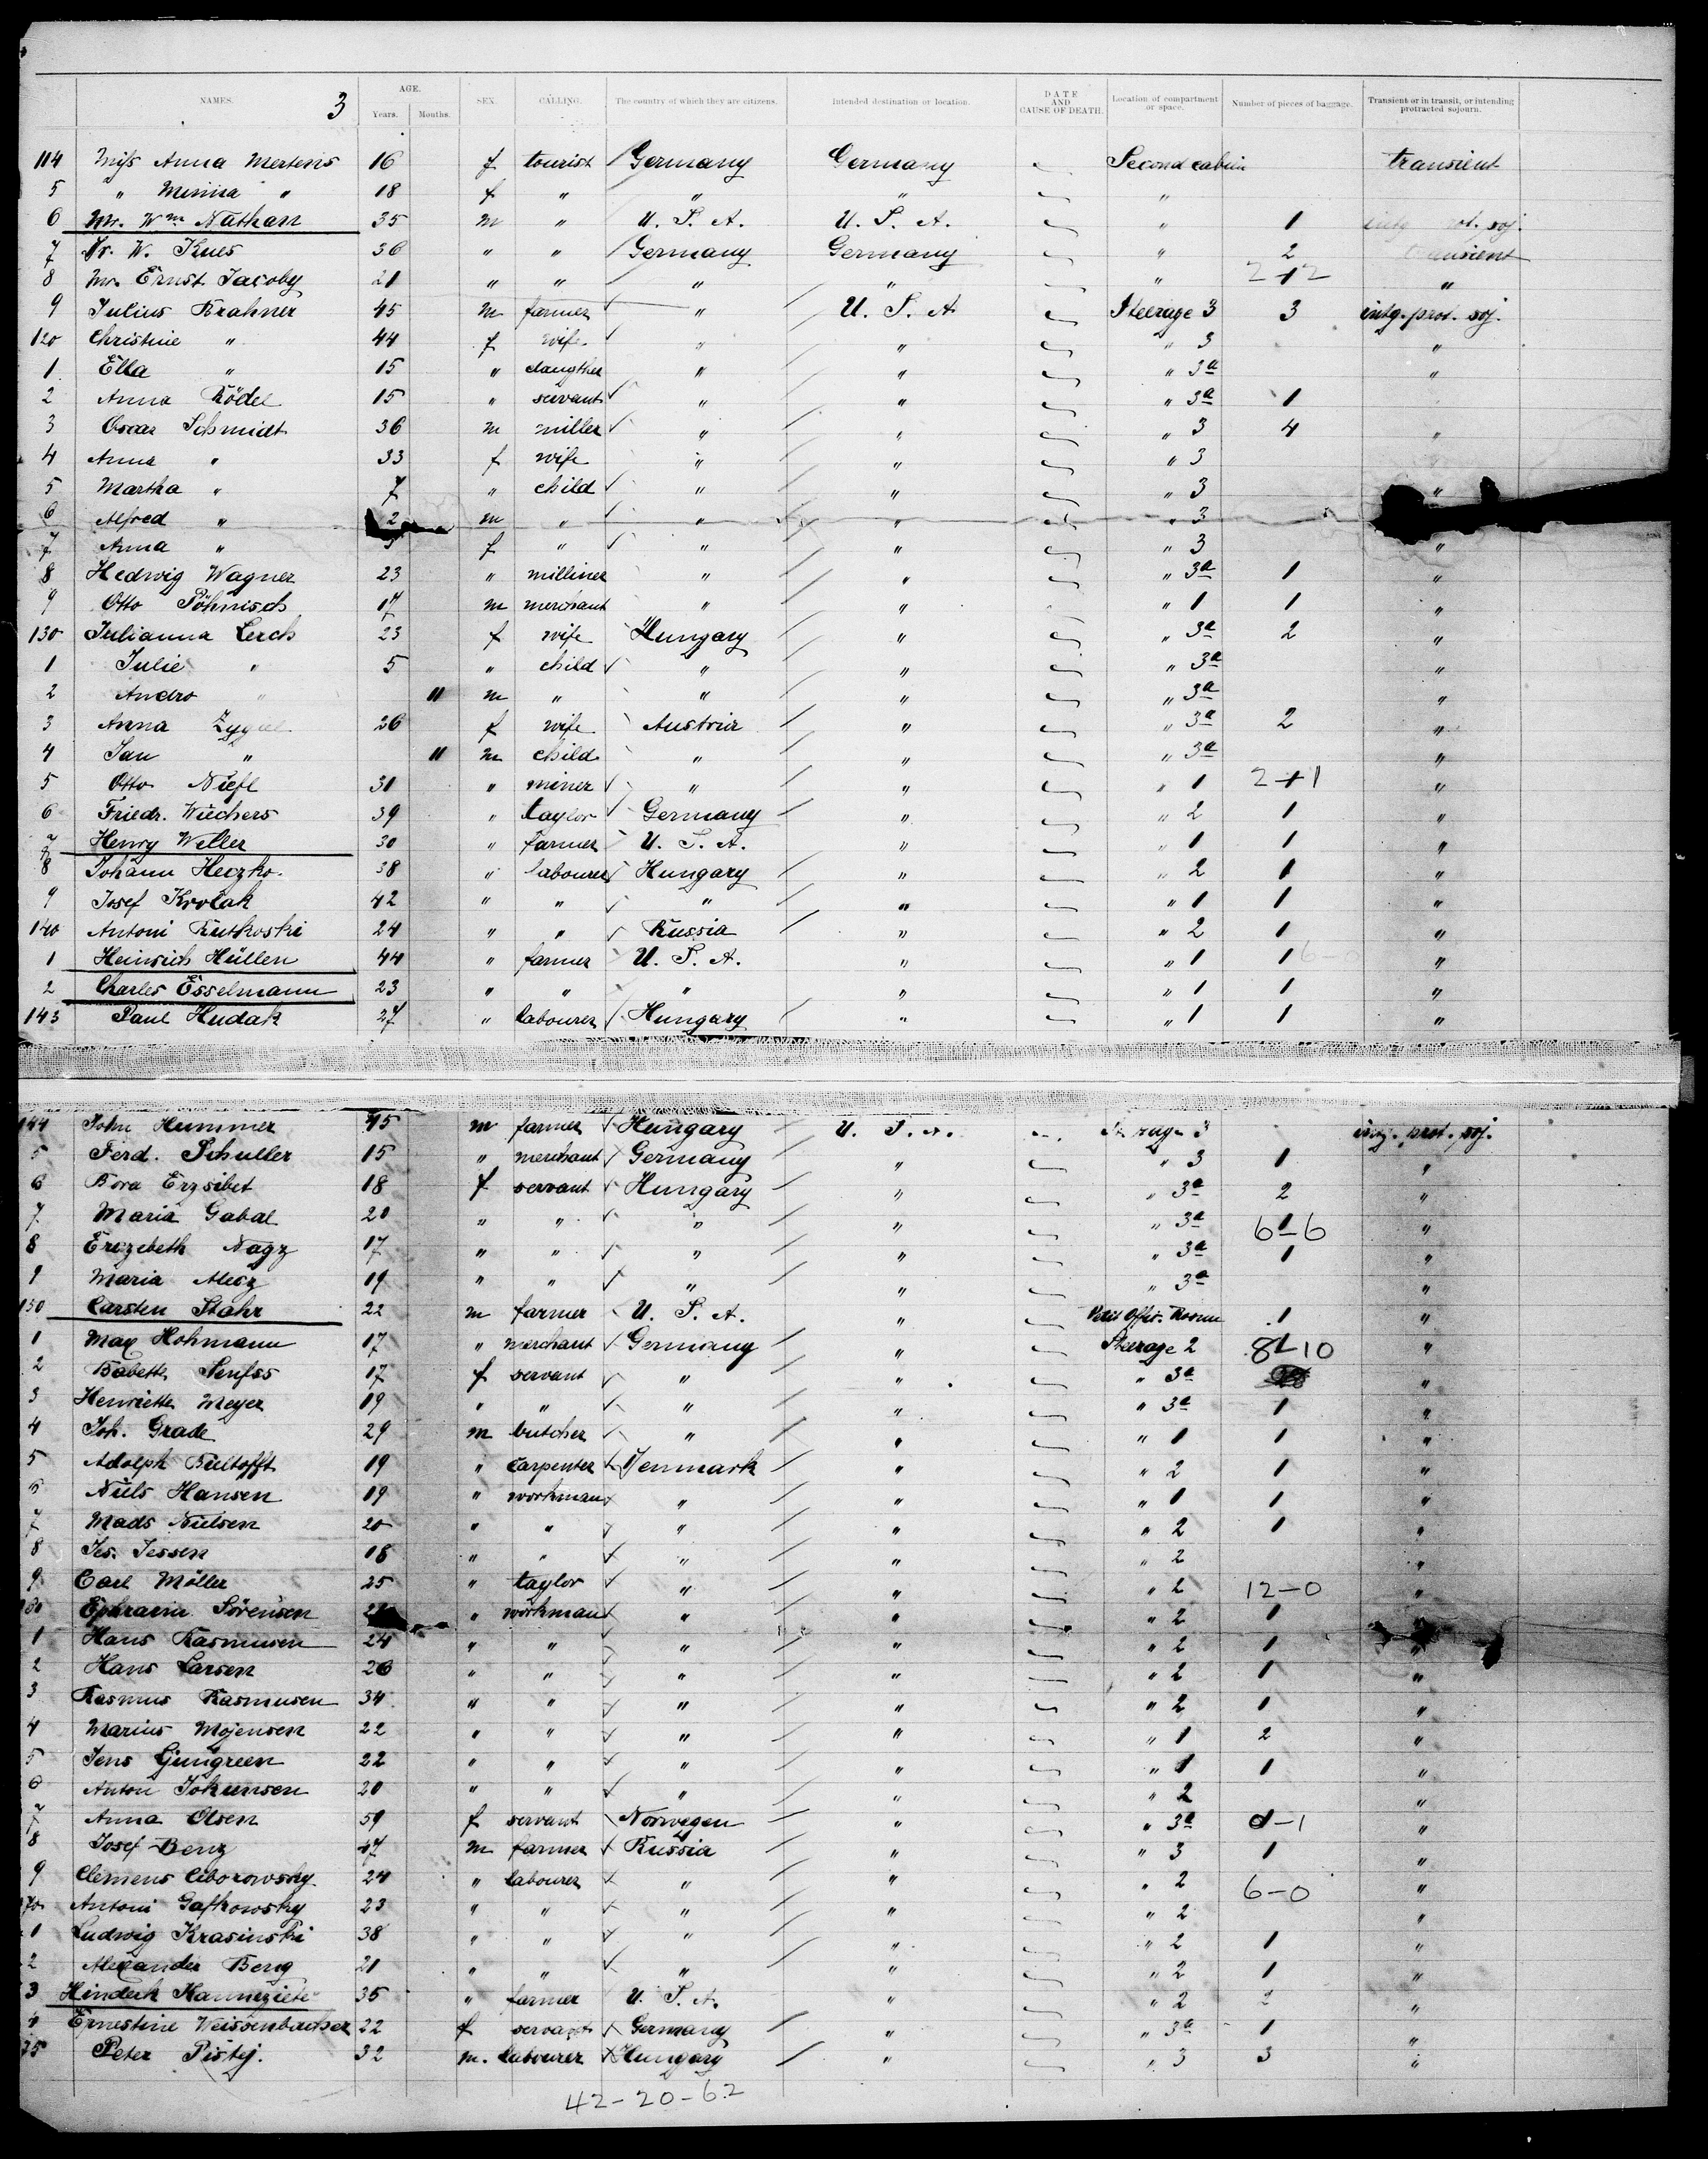 3
NAMES. AGE. Years. Months. SEX. CALLING. The country of which they are citizens. Intended destination or location. DATE AND CAUSE OF DEATH. Location of compartment or space. Number of pieces of baggage. Transient or in transit, or intending protracted sojourn.
114 Miss Anna Mertens 16 f tourist Germany Germany Second cabin transient
5 " Minna " 18 f " " " "
6 Mr. Wm Nathan 35 m " U. S. A. U. S. A. " 1 intg prot. soj.
7 Dr. W. Knes 36 " " Germany Germany " 2 transient
8 Mr. Ernst Jacoby 21 " " " " " 2-1-2 "
9 Julius Krahner 45 m farmer " U. S. A. Steerage 3 3 intg. prot. soj.
120 Christine " 44 f wife " " " 3 "
1 Ella " 15 " daugther " " " 3a "
2 Anna Rödel 15 " servant " " " 3a 1
3 Oscar Schmidt 36 m miller " " " 3 4 "
4 Anna " 33 f wife " " " 3
5 Martha " 7 " child " " " 3 "
6 Alfred " 2 m " " " " 3
7 Anna " f " " " " 3 "
8 Hedwig Wagner 23 " milliner " " " 3a 1 "
9 Otto Pöhnisch 17 m merchant " " " 1 1 "
130 Julianna Lerch 23 f wife Hungary " " 3a 2 "
1 Julie " 5 " child " " " 3a "
2 Andro " 11 m " " " " 3a "
3 Anna 26 f wife Austria " " 3a 2 "
4 Jan " 11 m child " " " 3a "
5 Otto Niefl 31 " miner " " " 1 2-1-1 "
6 Friedr. Wiechers 39 " taylor Germany " " 2 1 "
7 Henry Weller 30 " farmer U. S. A. " " 1 1 "
8 Johann Heczko 38 " labourer Hungary " " 2 1 "
9 Josef Krolak 42 " " " " " 1 1 "
140 Antoni Rutkoski 24 " " Russia " " 2 1 "
1 Heinrich Hüllen 44 " farmer U. S. A. " " 1 1 6 "
2 Charles Esselmann 23 " " " " " 1 1 "
143 Paul Hudak 27 " labourer Hungary " " 1 1 "
144 John Hummer 45 m farmer Hungary U. S. A. Steerage 3 intg. prot. soj.
5 Ferd. Schuller 15 " merchant Germany " " 3 1 "
6 Bora Erzsibet 18 f servant Hungary " " 3a 2 "
7 Maria Gabal 20 " " " " " 3a 1 6-6 "
8 Erczebeth Nagy 17 " " " " " 3a 1 "
9 Maria Alecz 19 " " " " " 3a "
150 Carsten Stahr 22 m farmer U. S. A. " Petit Offic. Room 1 "
1 Max Hohmann 17 " merchant Germany " Steerage 2 8-10 "
2 Babette Senfss 17 f servant " " " 3a "
3 Henriette Meyer 19 " " " " " 3a 1 "
4 Joh. Grade 29 m butcher " " " 1 1 "
5 Adolph Bültofft 19 " carpenter Denmark " " 2 1 "
6 Niels Hansen 19 " workman " " " 1 1 "
7 Mads Nielsen 20 " " " " " 2 1 "
8 Jes. Jessen 18 " " " " " 2 "
9 Carl Möller 25 " taylor " " " 2 12-0 "
160 Ephraim Sörensen " workman " " " 2 1
1 Hans Rasmusen 24 " " " " " 2 1 "
2 Hans Larsen 26 " " " " " 2 1 "
3 Rasmus Rasmusen 34 " " " " " 2 1 "
4 Marius Mojensen 22 " " " " " 1 2 "
5 Jens Ljungreen 22 " " " " " 1 1 "
6 Anton Johansen 20 " " " " " 2 "
7 Anna Olsen 59 f servant Norwegen " " 3a 0-1 "
8 Josef Benz 47 m farmer Russia " " 3 1 "
9 Clemens Ciborowsky 24 " labourer " " " 2 6-0 "
170 Antoni Gafkowsky 23 " " " " " 2 "
1 Ludwig Krasinski 38 " " " " " 2 1 "
2 Alexander Berg 21 " " " " " 2 1 "
3 Hinderk 35 " farmer U. S. A. " " 2 2 "
4 Ernestine Weissenbacher 22 f servant Germany " " 3a 1 "
175 Peter Pistej. 32 m. labourer Hungary " " 3 3 "
42-20-62